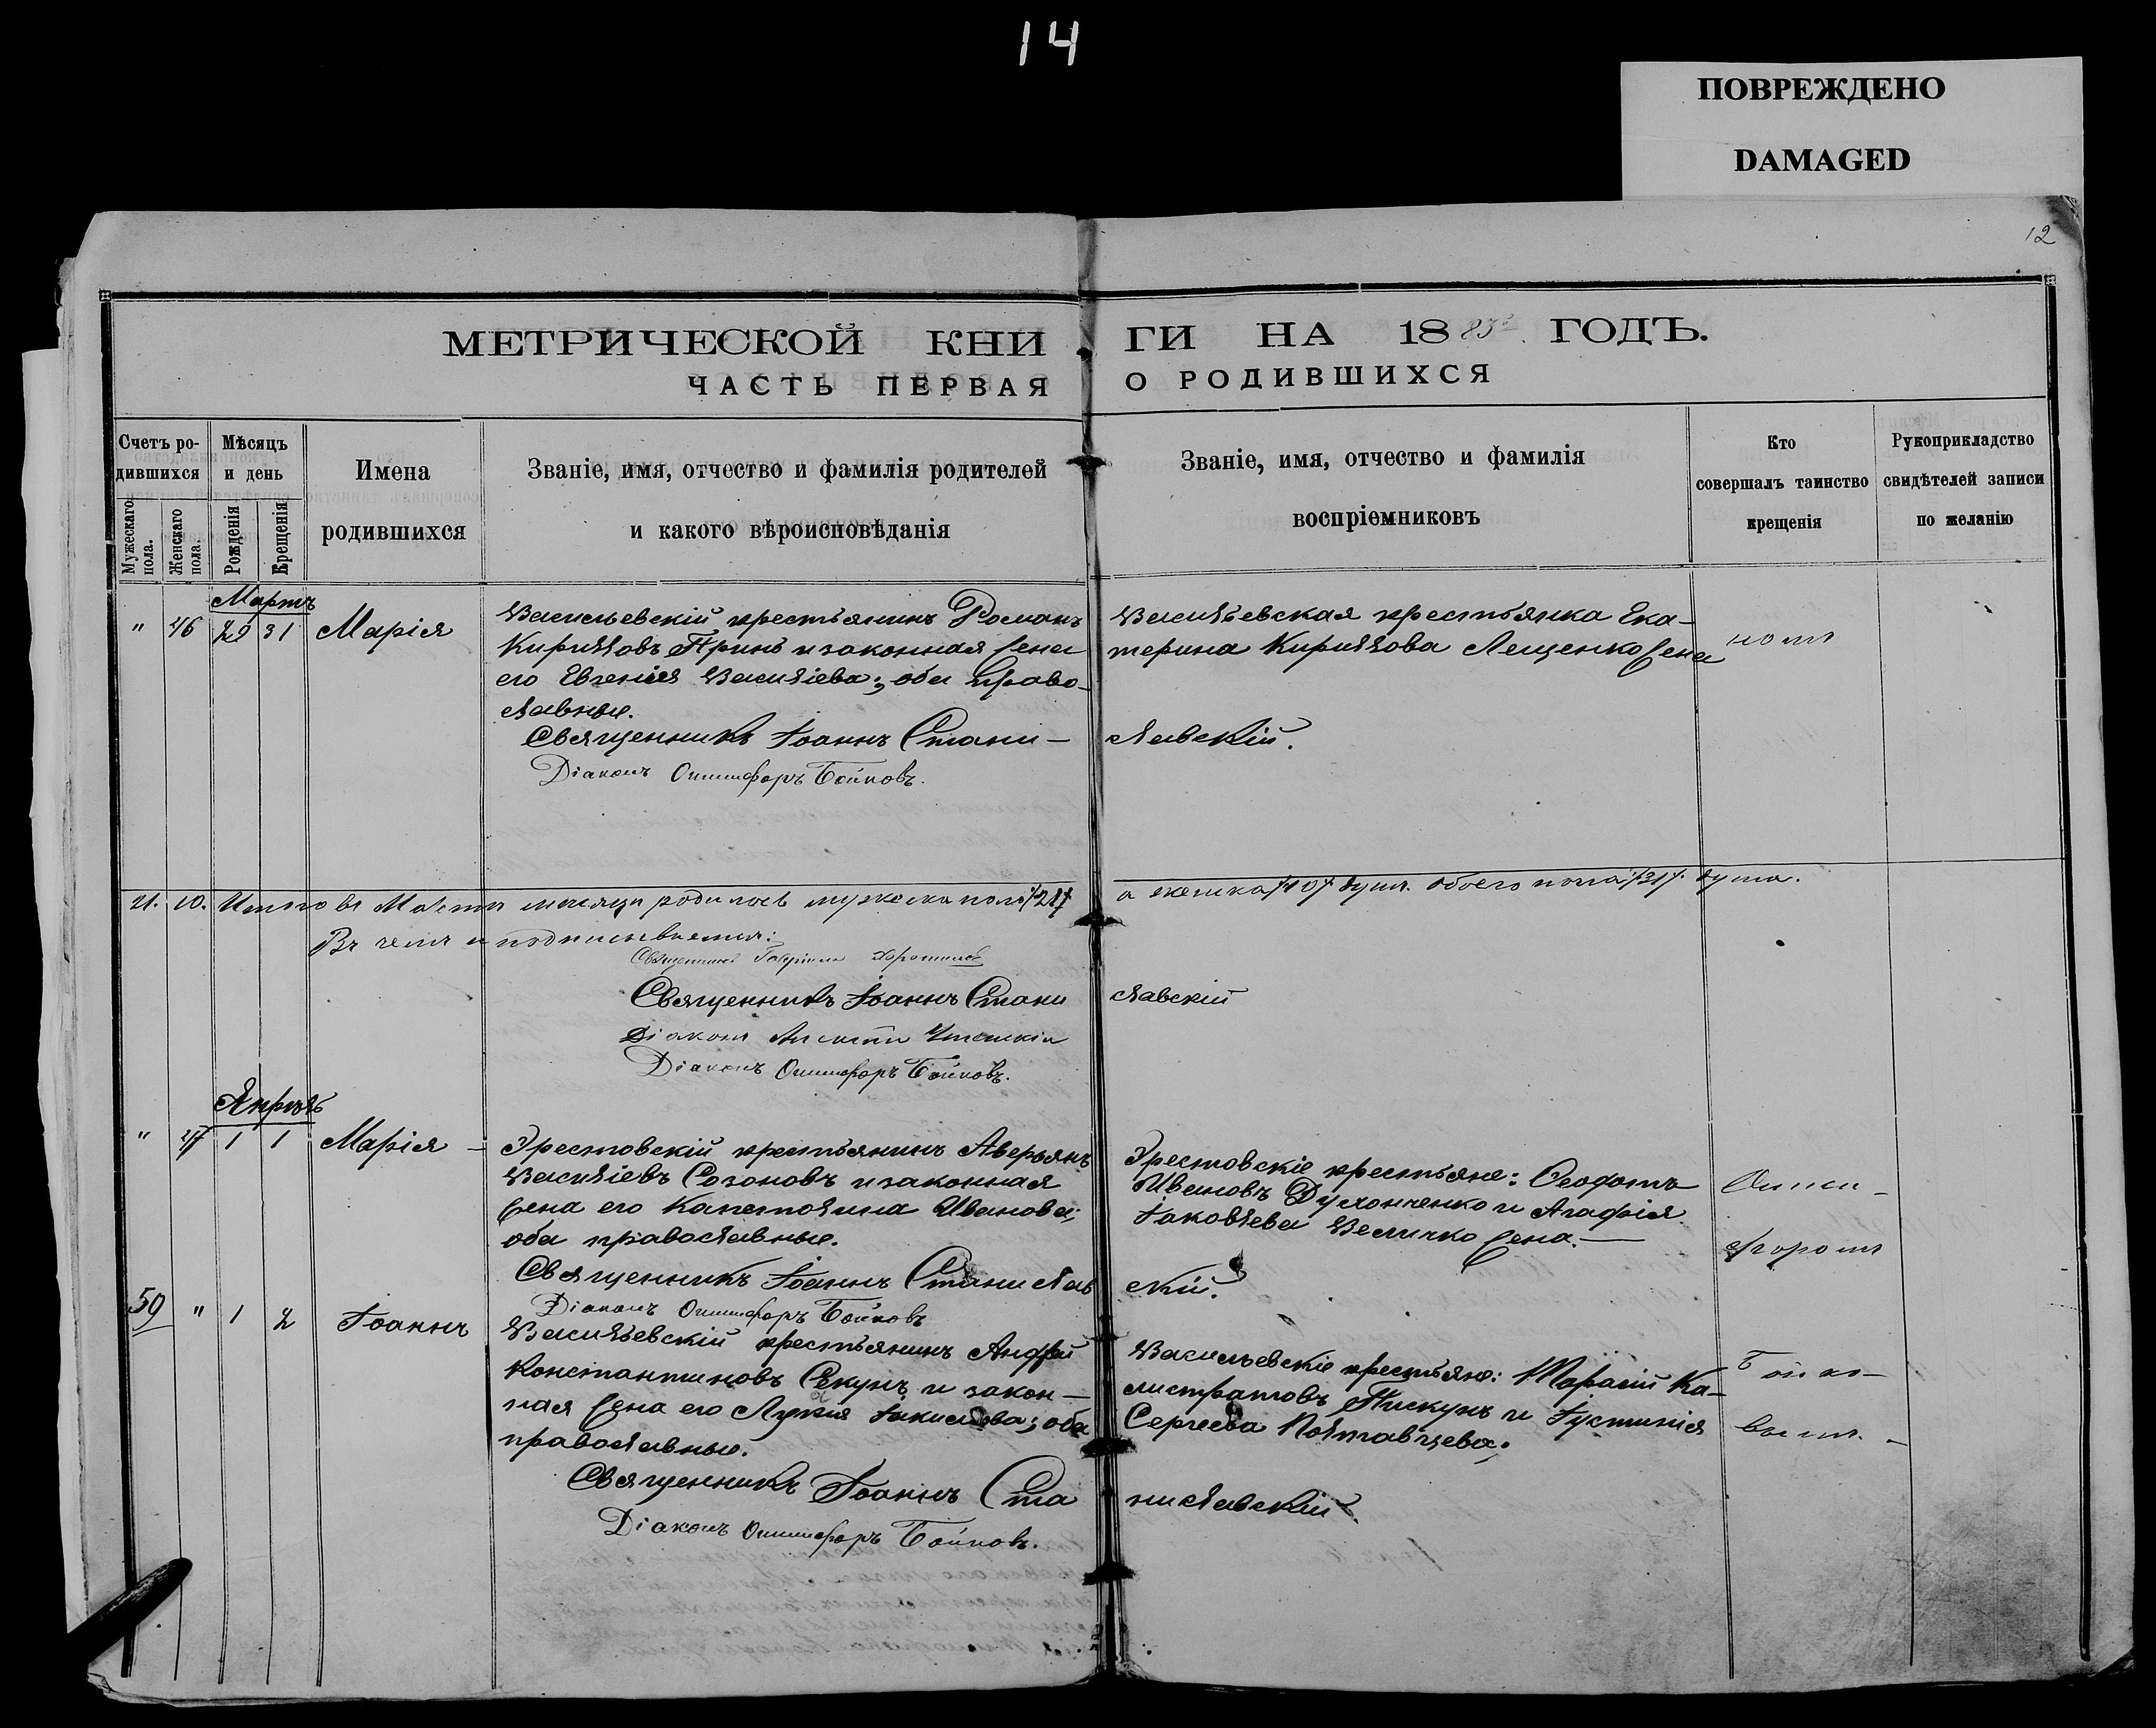 14
ПОВРЕЖДЕНО
DAMAGED
12
МЕТРИЧЕСКОЙ КНИ ГИ НА 1883 ГОДЪ.
ЧАСТЬ ПЕРВАЯ О РОДИВШИХСЯ
Счетъ ро-
дившихся
Мужескаго
пола.
Женскаго
пола.
Мѣсяцъ
и день
Рожденія
Крещенія
Имена
родившихся
Званіе, имя, отчество и фамилія родителей
и какого вѣроисповѣданія
Званіе, имя, отчество и фамилія
воспріемниковъ
Кто
совершалъ таинство
крещенія
Рукоприкладство
свидѣтелей записи
по желанію
Мартъ
" 46 29 31 Марія
Васильевскій крестьянинъ Романъ
Кирилловъ и законная жена
его Евгенія Василіева; оба право-
славные.
Священникъ Іоаннъ Стани-
славскій.
Діаконъ Онисифоръ Бойковъ.
Васильевская крестьянка Ека-
терина Кириллова Лещенко жена
номъ
21. 10. Итого въ Мартѣ мѣсяцѣ родилось мужска пола /21/
а женска /10/ душъ. обоего пола /31/ душа.
Въ чемъ и подписываемся:
Священникъ Гавріилъ
Священникъ Іоаннъ Стани
славскій
Діаконъ
Діаконъ Онисифоръ Бойковъ.
Апрѣль
" 47 1 1 Марія
крестьянинъ Аверьянъ
Василіевъ Созоновъ и законная
жена его Капетолина Иванова;
оба православные.
Священникъ Іоаннъ Станислав
скій.
Діаконъ Онисифоръ Бойковъ
крестьяне: Феодотъ
Ивановъ и Агафія
Іаковлева Величко жена.
Ониси-
форомъ
59 " 1 2 Іоаннъ
Васильевскій крестьянинъ Андрей
Константиновъ Секунъ и закон-
ная жена его оба
православные.
Священникъ Іоаннъ Ста
ниславскій.
Діаконъ Онисифоръ Бойковъ.
Васильевскіе крестьяне: Тарасій Ка-
листратовъ Пискунъ и Іустинія
Сергеева Полтавцева;
Бойко-
вымъ.